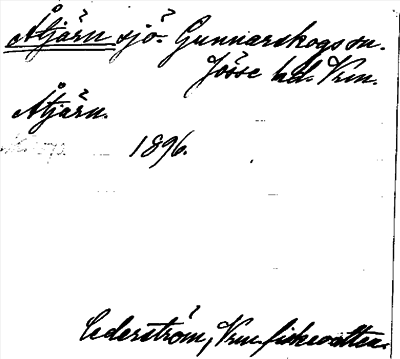 Åtjärn sjö. Gunnarskogs sn.
Jösse hd. Vrm.
Åtjärn.
1896.
Cederström, Vrm fiskevatten.